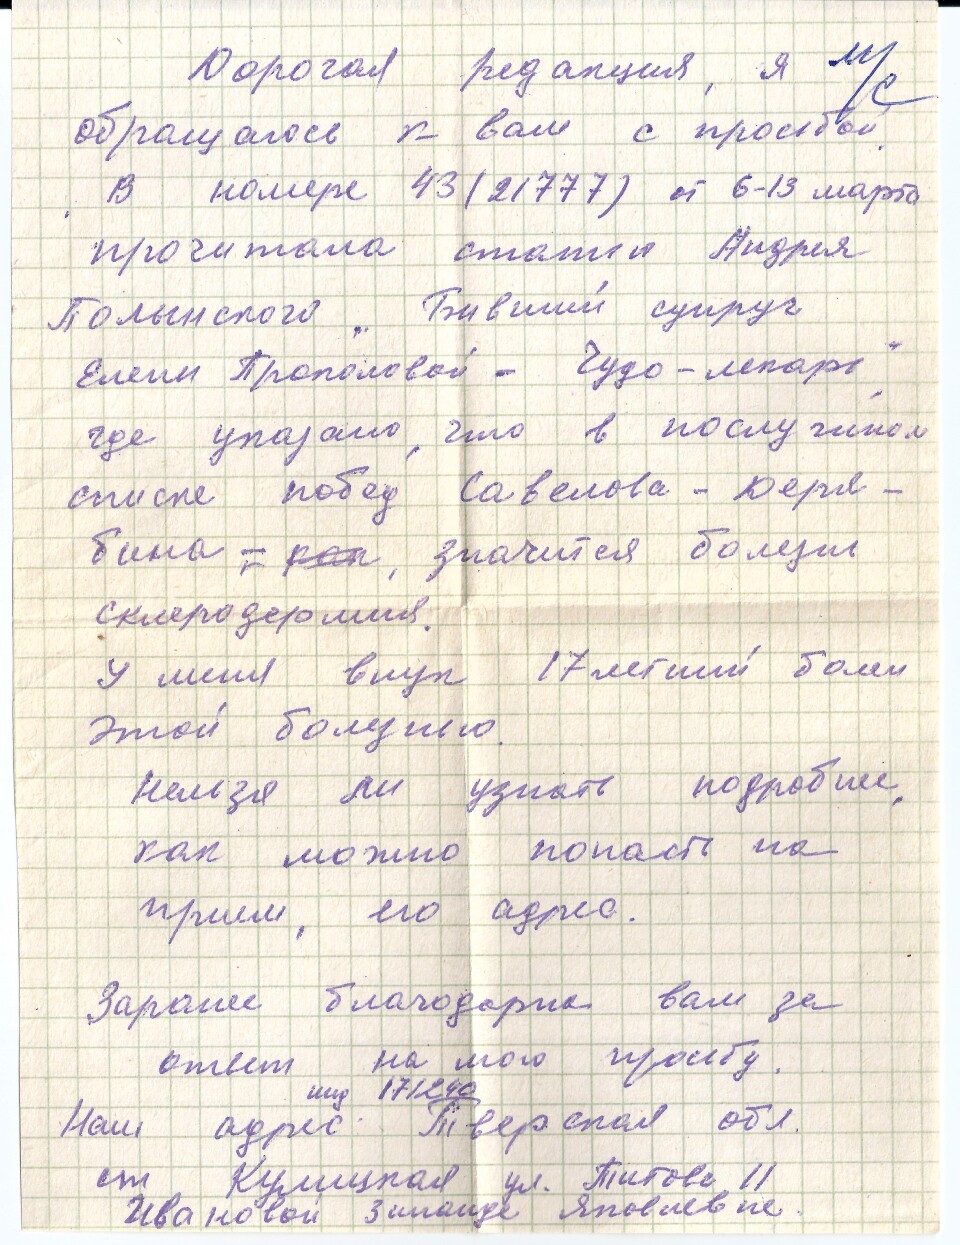 Дорогая редакция, я м/с
обращаюсь к вам с просьбой.
В номере 43 (21777) от 6-13 марта
прочитала статью Андрея
Полынского „Бывший супруг
Елены Прокловой - Чудо-лекарь",
где указано, что в послужном
списке побед Савелова-Деря-
бина - как, значится болезнь
склеродермия.
У меня внук 17 летний болен
этой болезнью.
Нельзя ли узнать подробнее,
как можно попасть на
прием, его адрес.
Заранее благодарна вам за
ответ на мою просьбу.
инд 171240
Наш адрес: Тверская обл.
ст Кулицкая ул. Титова 11
Ивановой Зинаиде Яковлевне.